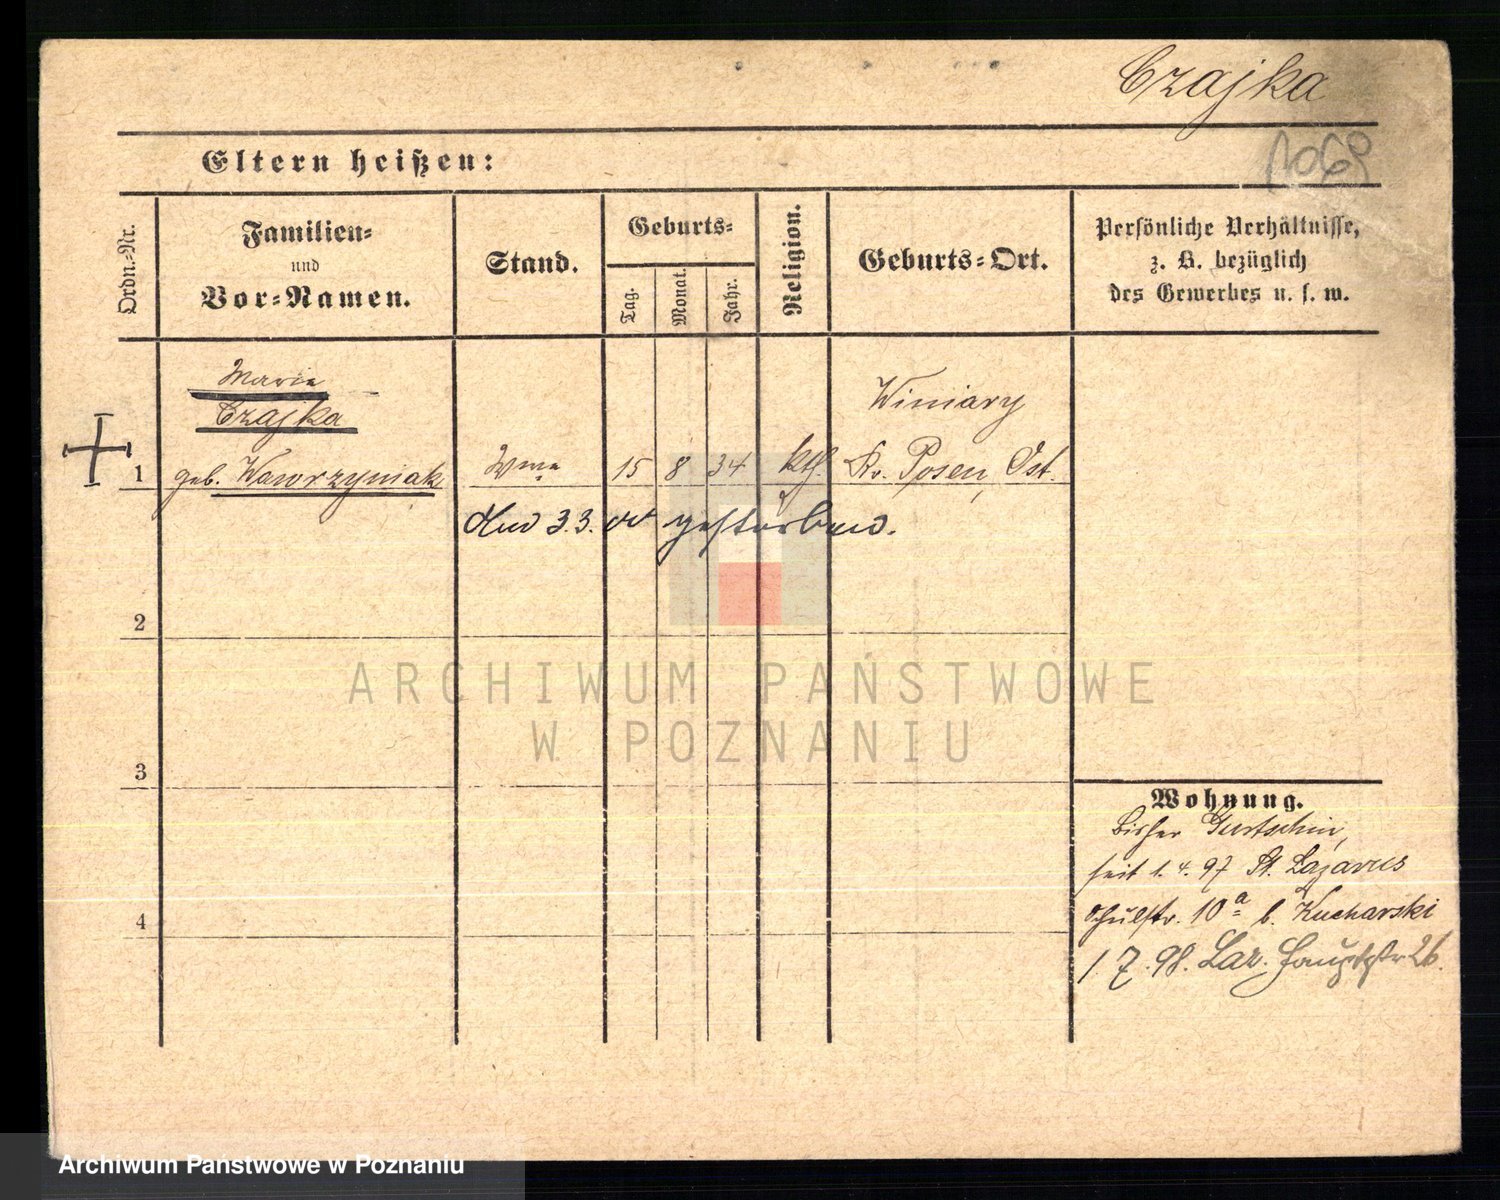 Czajka
1069
Eltern heißen:
Ordn.-Nr.
Familien-
und
Vor-Namen.
Stand.
Geburts-
Tag.
Monat.
Jahr.
Religion.
Geburts-Ort.
Persönliche Verhältnisse,
z. B. bezüglich
des Gewerbes u. s. w.
Marie
Czajka
1 geb. Wawrzyniak Wwe 15 8 34 kth. Winiary
Kr. Posen, Ost.
3.3. gestorben.
2
3
4
Wohnung.
bisher Gurtschin,
seit 1. 4. 97 St. Lazarus
Schulstr. 10a b. Kucharski
1 7. 98. Laz. Hauptstr 26.
ARCHIWUM PAŃSTWOWE
W POZNANIU
Archiwum Państwowe w Poznaniu